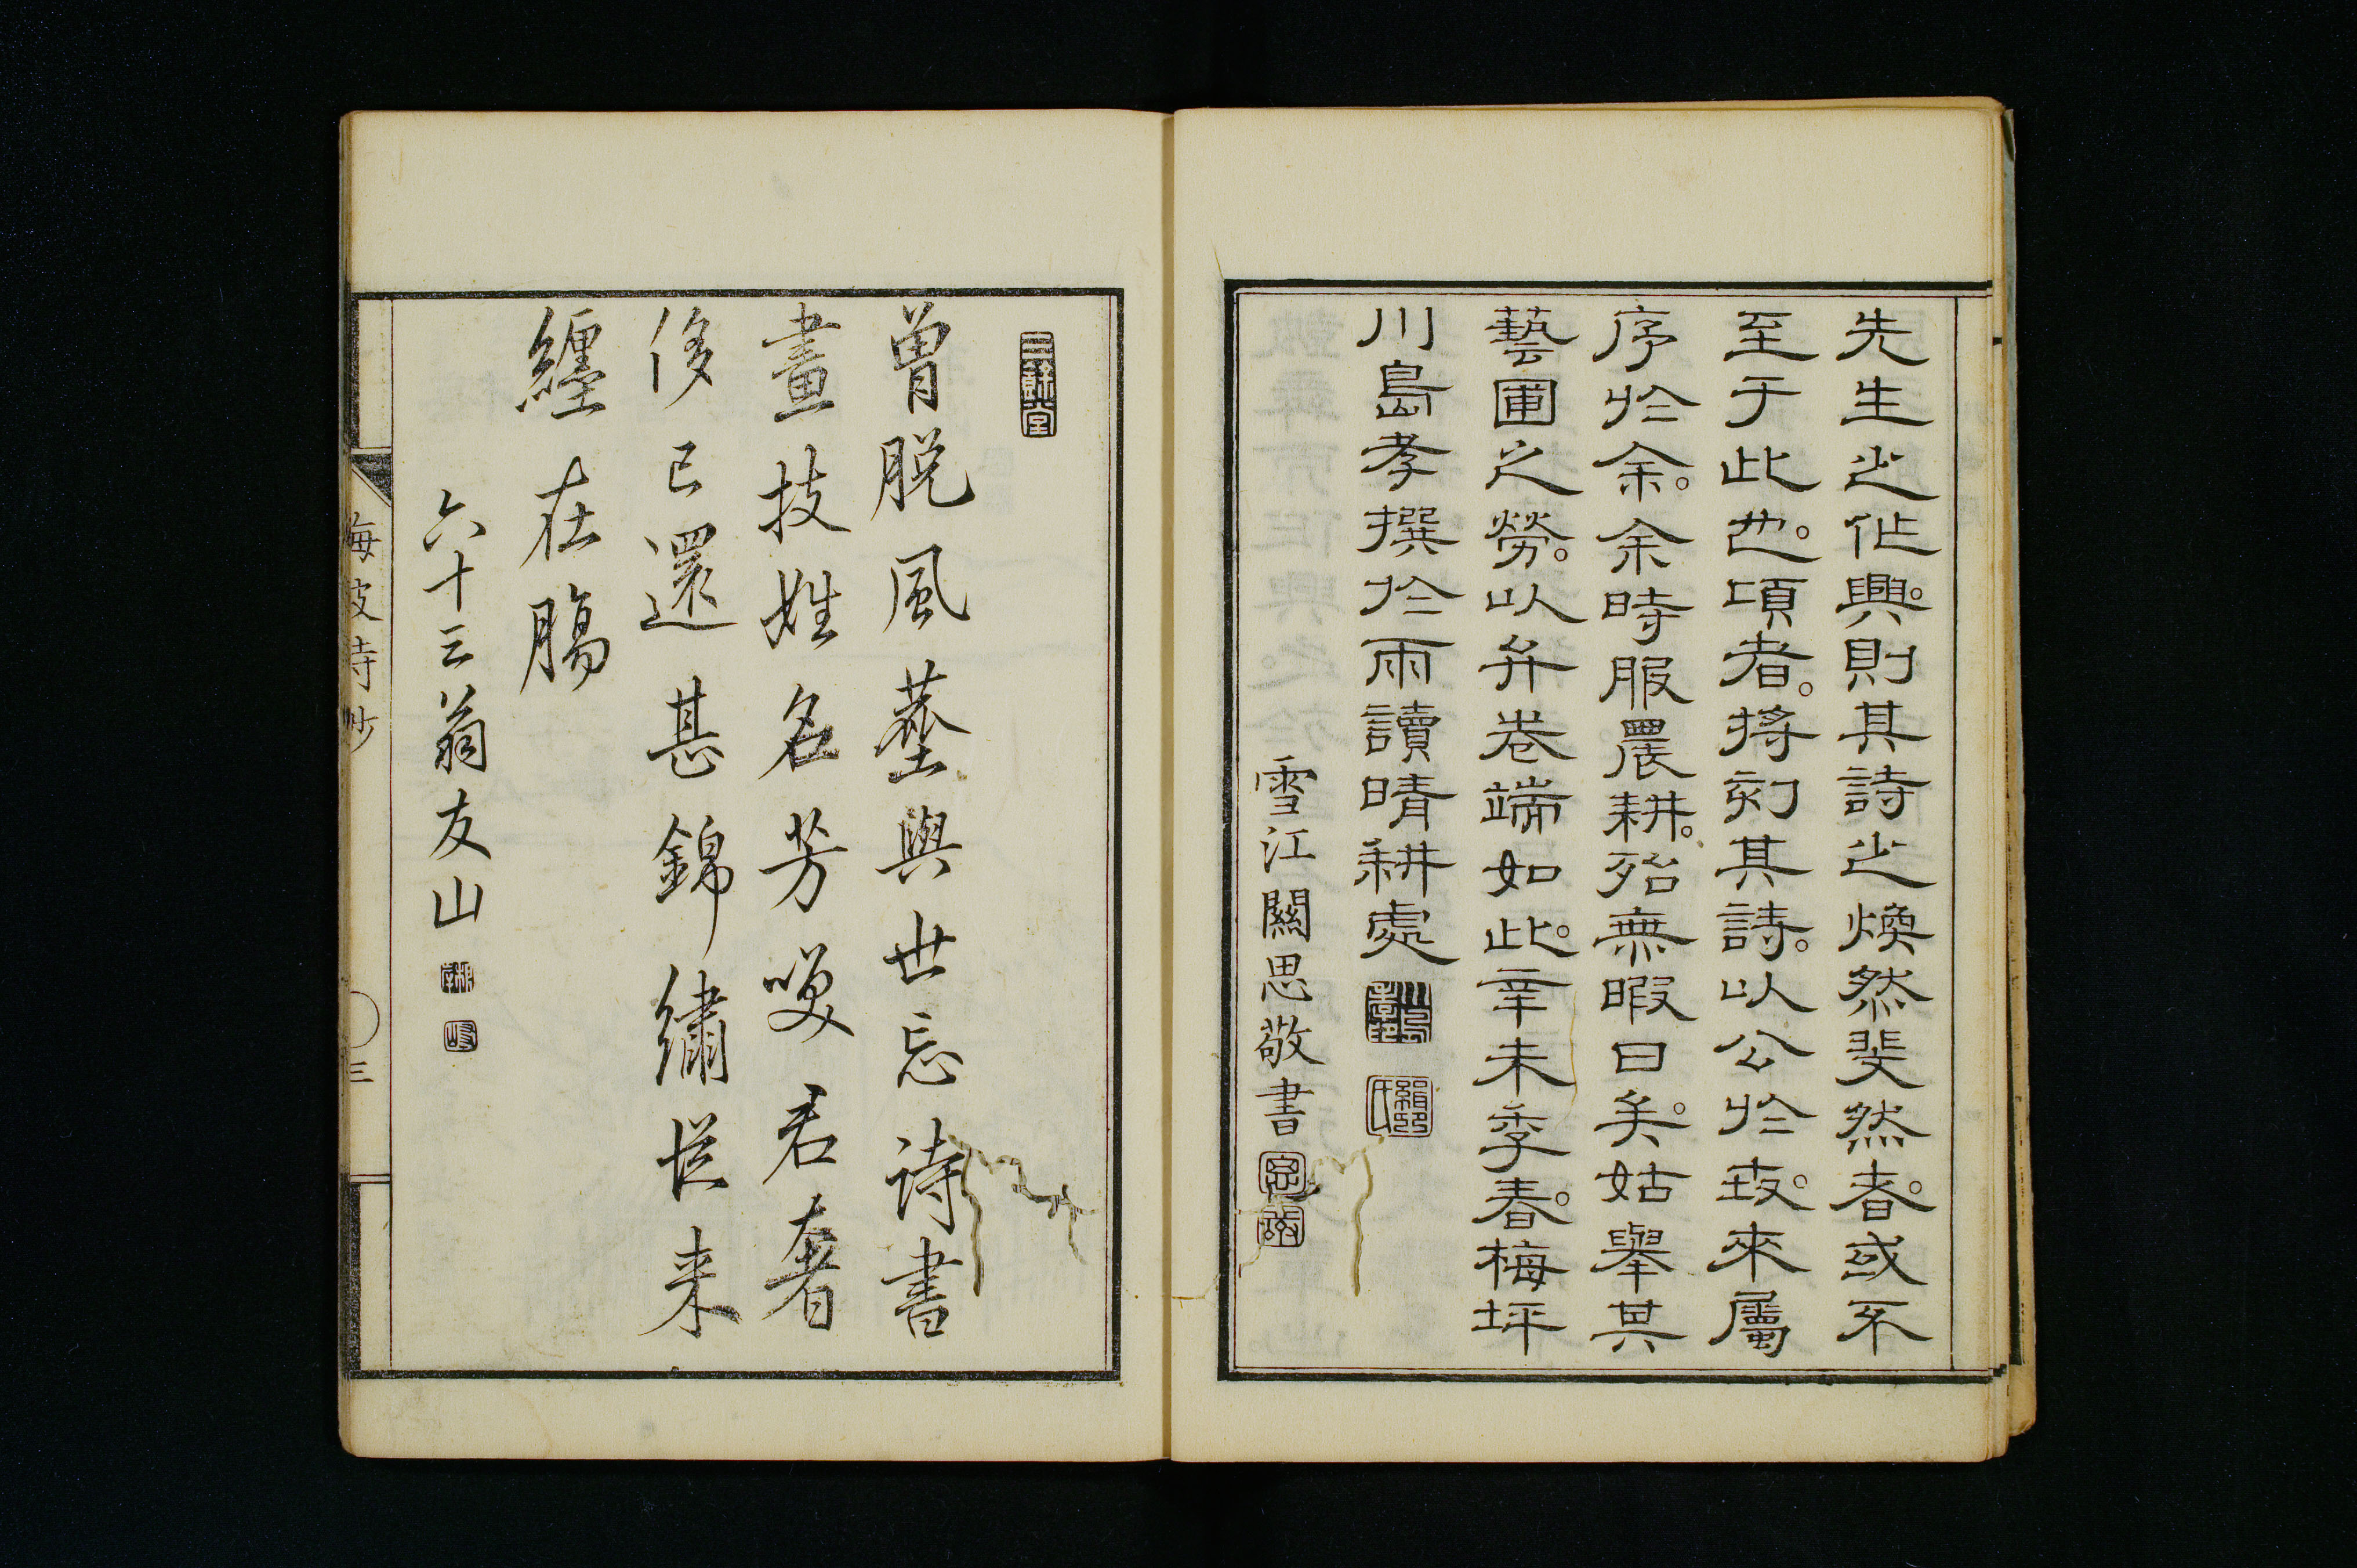 先生之作興。則其詩之煥然斐然者。或不
至于此也。頃者。將刻其詩。以公於世。來屬
序於余。余時服農耕。殆無暇日矣。姑舉其
藝圃之勞。以弁卷端如此。辛未季春。梅坪
川島孝撰於雨讀晴耕處
雪江關思敬書
三餘堂
曾脱風塵與世忘詩書
畫技姓名芳嘆君奢
侈已還甚錦繡從来
纏在腸
六十三翁友山
海坡詩抄
三